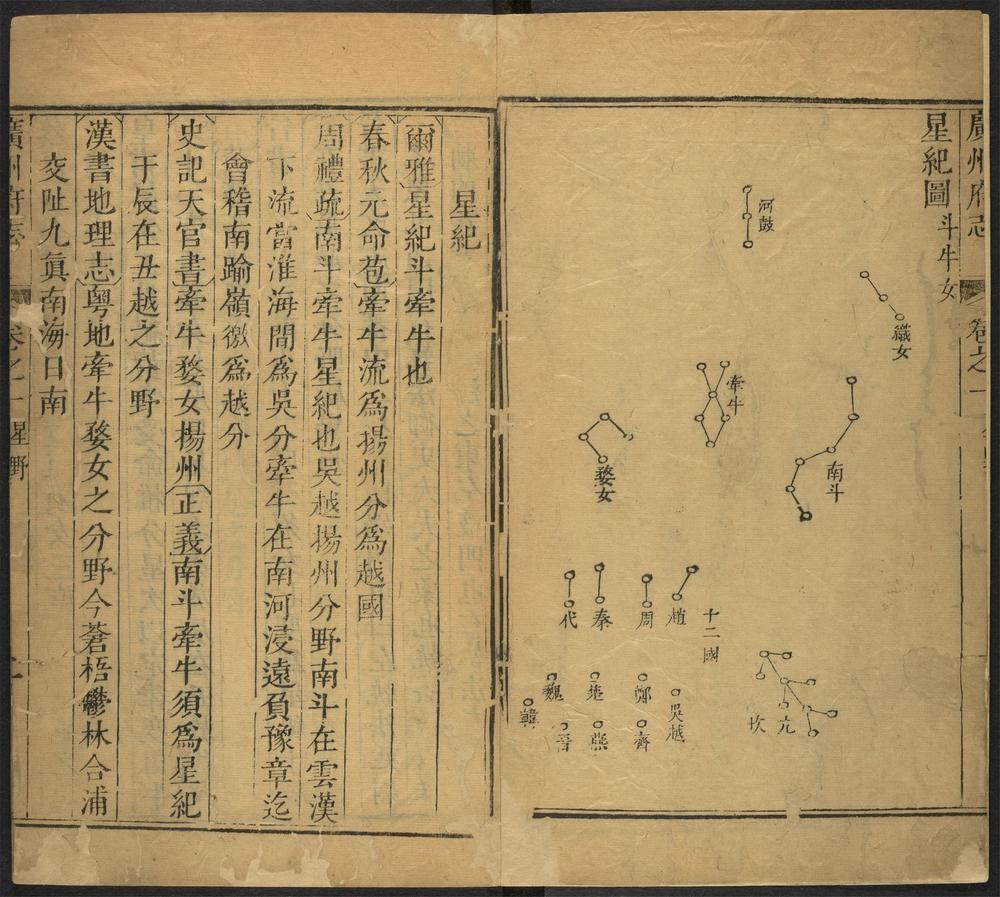 廣州府志 卷之一
星紀圖 斗牛女
河鼓
織女
牽牛
南斗
婺女
十二國
趙
周
秦
代
吳越
鄭
楚
魏
韓
齊
燕
晉
星紀
爾雅星紀斗牽牛也
春秋元命苞牽牛流爲揚州分爲越國
周禮疏南斗牽牛星紀也吳越揚州分野南斗在雲漢
下流當淮海間爲吳分牽牛在南河浸遠負豫章迄
會稽南踰嶺徼爲越分
史記天官書牽牛婺女揚州正義南斗牽牛須爲星紀
于辰在丑越之分野
漢書地理志粵地牽牛婺女之分野今蒼梧鬱林合浦
交阯九真南海日南
廣州府志 卷之一 星野